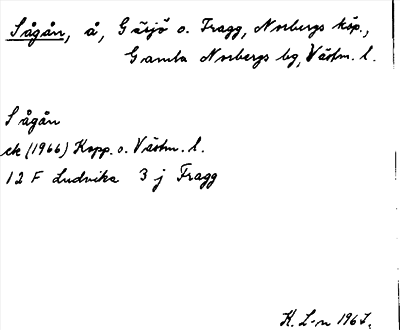 Sågån, å, Gäsjö o. Fragg, Norbergs köp.,
Gamla Norbergs bg, Västm. l.
Sågån
ek (1966) Kopp. o. Västm. l.
12 F Ludvika 3 j Fragg
K. L-n 1967.